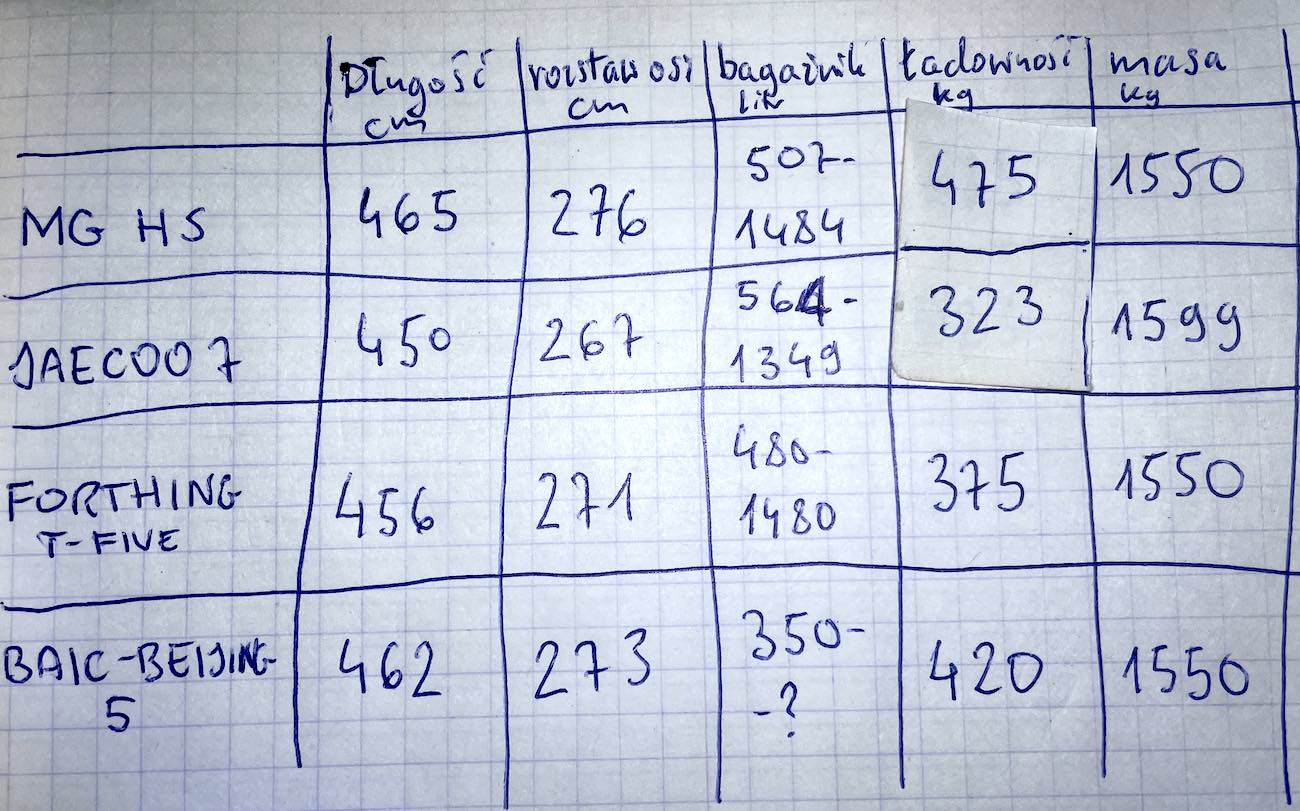 Długość rozstaw osi bagażnik ładowność masa
cm cm litr kg kg
507-
MG HS 465 276 1484 475 1550
564-
JAECOO 7 450 267 1349 323 1599
480-
FORTHING 456 271 1480 375 1550
T-FIVE
350-
BAIC-BEIJING 462 273 -? 420 1550
5